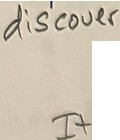 discover
It